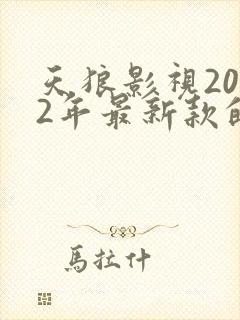 天狼影視20
2年最新款的
馬拉什